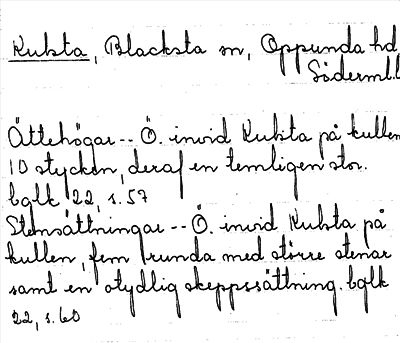 Kubsta, Blacksta sn, Oppunda hd,
Söderml.l
Ättehögar -- Ö. invid Kubsta på kullen
10 stycken, deraf en temligen stor.
bglk 22, s. 57
Stensättningar -- Ö. invid Kubsta på
kullen, fem runda med större stenar
samt en otydlig skeppssättning. bglk
22, s. 60